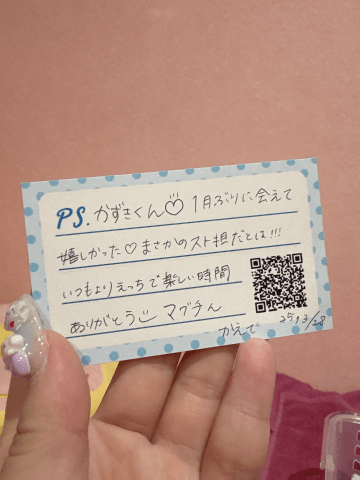 PS. かずきくん♡ 1月ぶりに会えて
嬉しかった♡ まさかのスト担だとは!!!
いつもよりえっちで楽しい時間
ありがとう マブチん
かえで
25,3/28